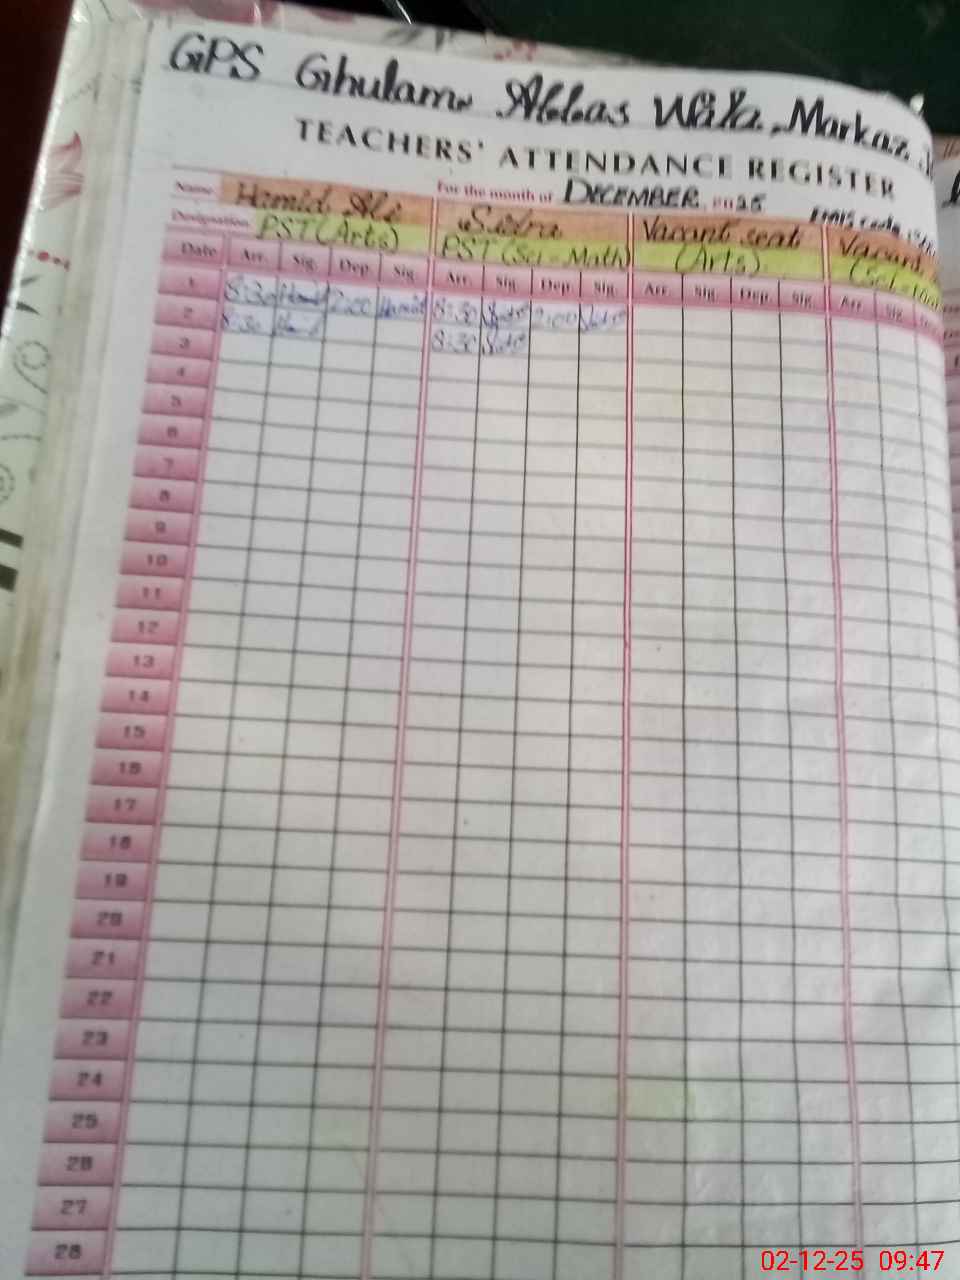 GPS Ghulam Abbas Wala, Markaz
TEACHERS' ATTENDANCE REGISTER
Name Hamid Ali For the month of DECEMBER, 2025
Sidra Vacant seat Vacant
Designation PST (Arts) PST (Sci-Math) (Arts)
Date Arr. Sig. Dep. Sig. Arr. Sig. Dep. Sig. Arr. Sig. Dep. Sig. Arr. Sig.
1 8:30 Hamid 2:00 Hamid 8:30 2:00
2 8:30 8:30
3
4
5
6
7
8
9
10
11
12
13
14
15
16
17
18
19
20
21
22
23
24
25
26
27
28
02-12-25 09:47